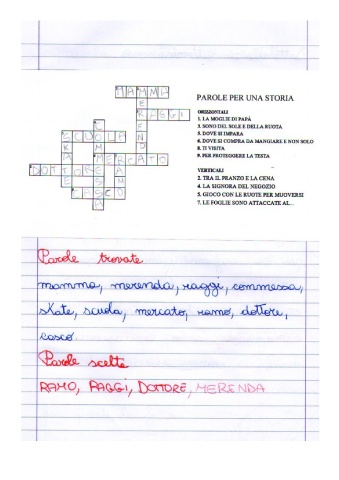 MAMMA
RAGGI
SCUOLA
MERCATO
DOTTORE
CASCO
PAROLE PER UNA STORIA
ORIZZONTALI
1. LA MOGLIE DI PAPÀ
3. SONO DEL SOLE E DELLA RUOTA
5. DOVE SI IMPARA
6. DOVE SI COMPRA DA MANGIARE E NON SOLO
8. TI VISITA
9. PER PROTEGGERE LA TESTA
VERTICALI
2. TRA IL PRANZO E LA CENA
4. LA SIGNORA DEL NEGOZIO
5. GIOCO CON LE RUOTE PER MUOVERSI
7. LE FOGLIE SONO ATTACCATE AL...
Parole trovate
mamma, merenda, raggi, commessa,
skate, scuola, mercato, ramo, dottore,
casco.
Parole scelte
RAMO, RAGGI, DOTTORE, MERENDA